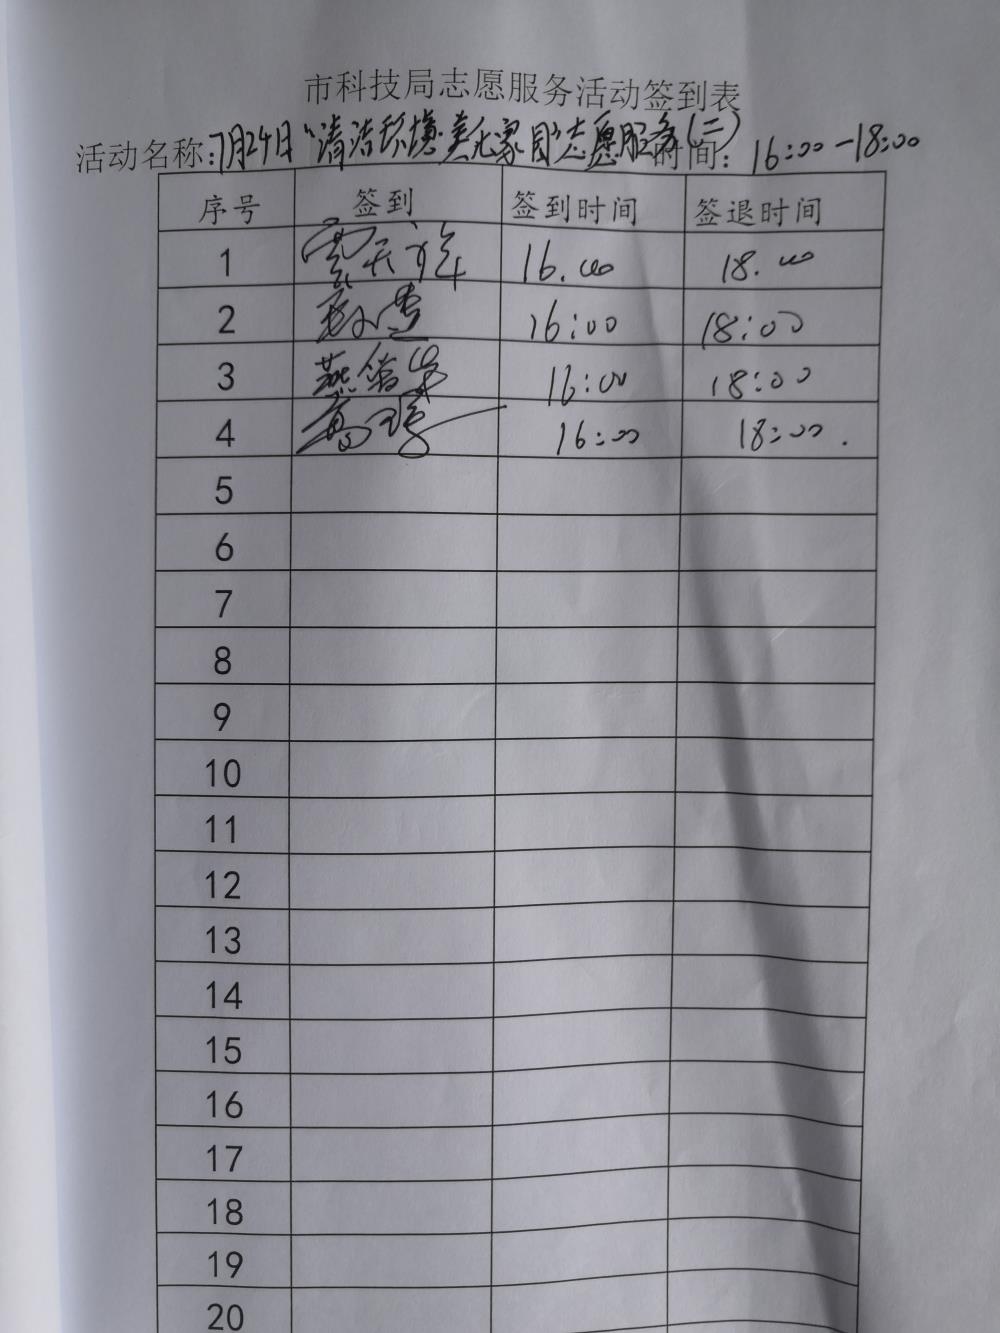 市科技局志愿服务活动签到表
活动名称:7月24日“清洁环境 美化家园”志愿服务(二) 时间: 16:00-18:00
序号 签到 签到时间 签退时间
1 16.00 18.00
2 16:00 18:00
3 16:00 18:00
4 16:00 18:00.
5
6
7
8
9
10
11
12
13
14
15
16
17
18
19
20